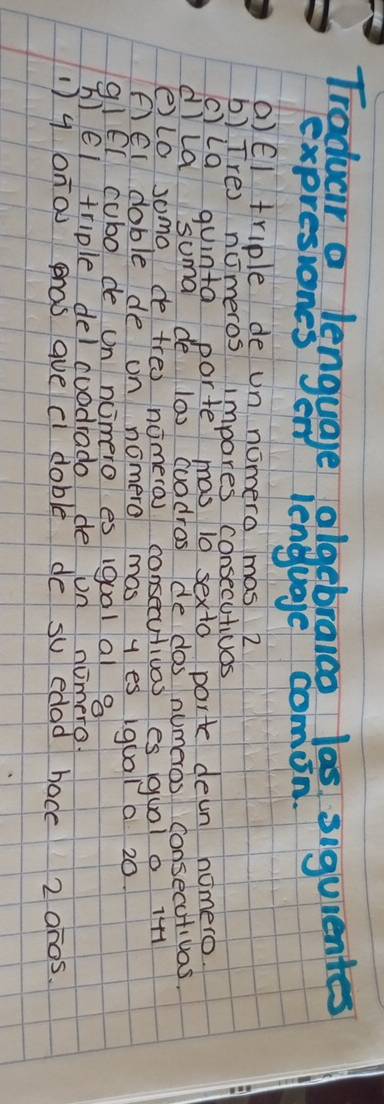 Traducir a lenguaje algebraico las siguientes
expresiones en lenguaje común.
a) El triple de un número mas 2
b) Tres números impares consecutivos
c) La quinta parte mas la sexta parte de un número.
d) La suma de los cuadros de dos numeros consecutivos.
e) La suma de tres números consecutivos es igual a 141
f) El doble de un número mas 4 es igual a 20.
g) El cubo de un número es igual al 8
h) El triple del cuadrado de un número.
i) 4 años mas que el doble de su edad hace 2 años.